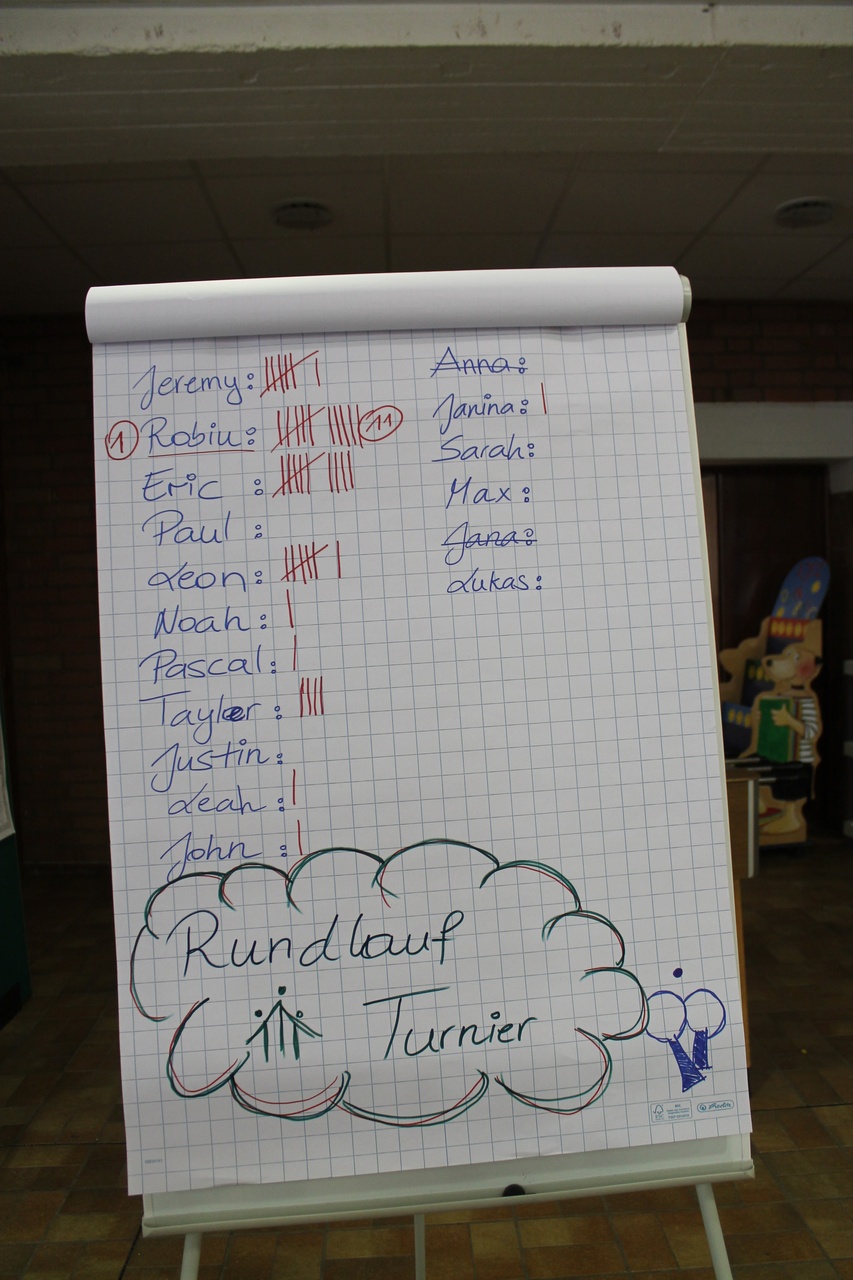 Jeremy: 卌 |
① Robin: 卌 ||||| ⑪
Eric : 卌 ||||
Paul :
Leon: 卌 |
Noah: |
Pascal: |
Tayler : ||||
Justin:
Leah : |
John : |
Anna:
Janina: |
Sarah:
Max :
Jana:
Lukas:
Rundlauf
Turnier